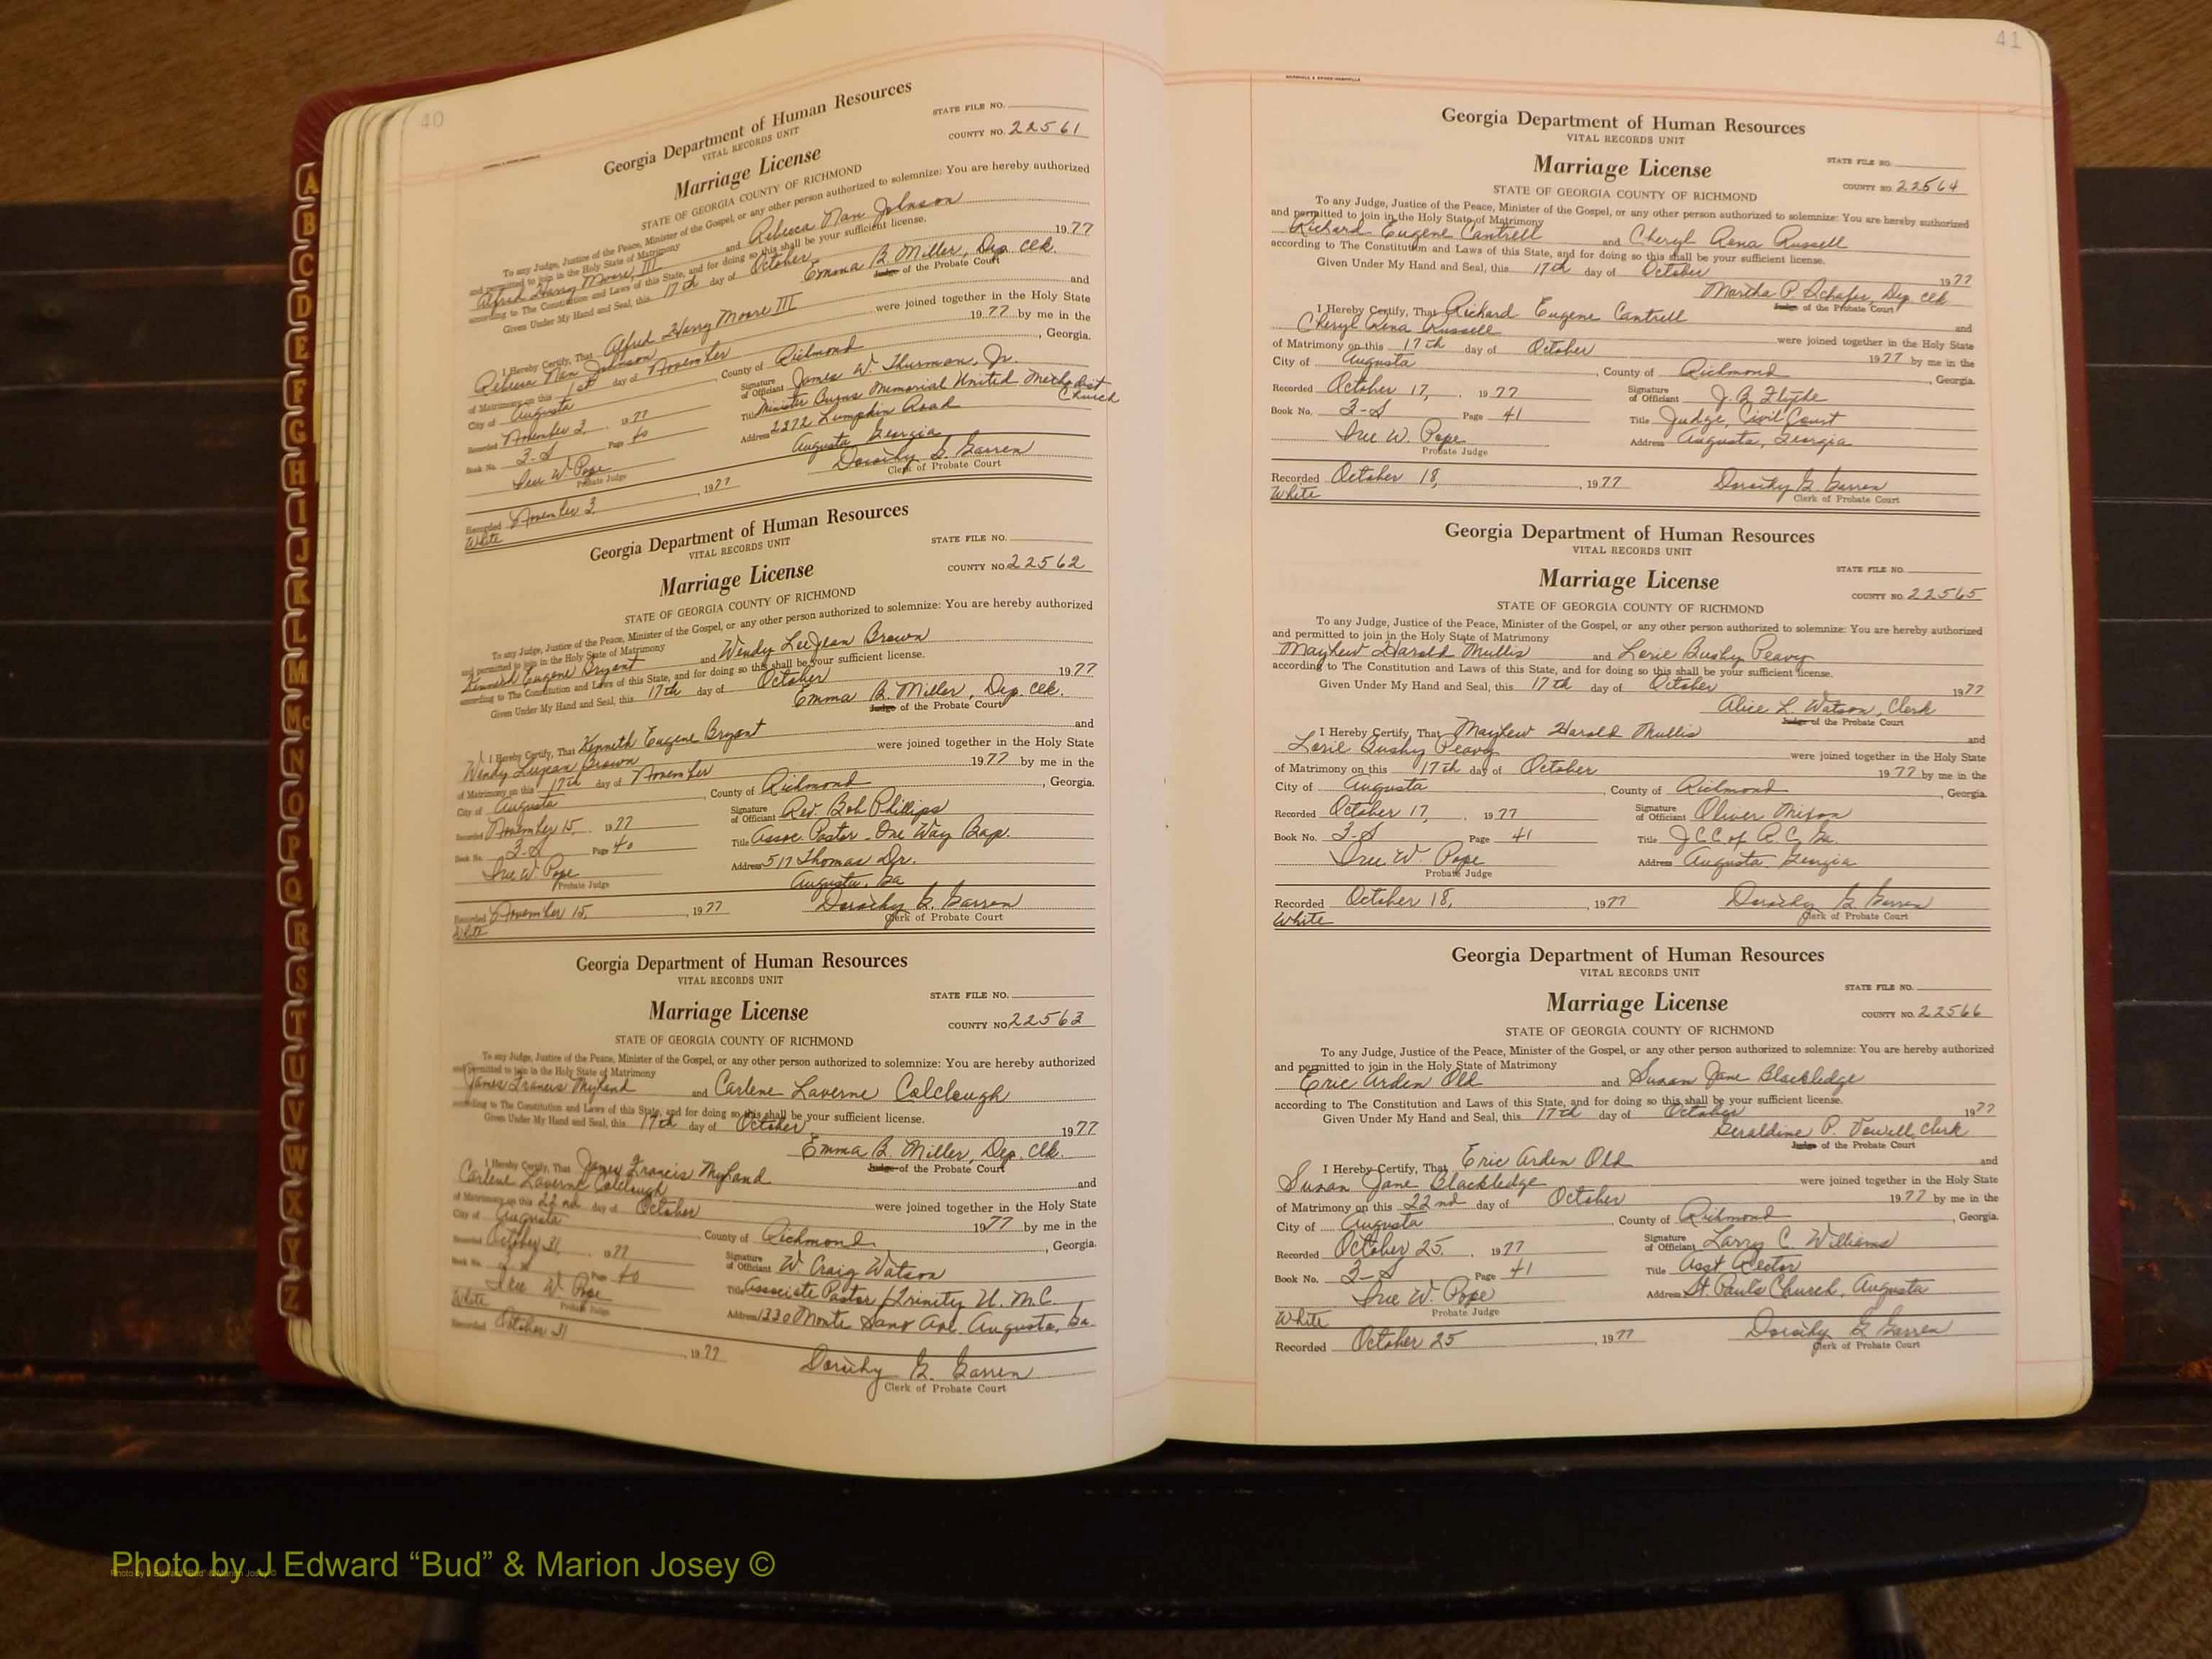 40
Georgia Department of Human Resources
VITAL RECORDS UNIT
STATE FILE NO.
Marriage License
COUNTY NO. 22561
STATE OF GEORGIA COUNTY OF RICHMOND
To any Judge, Justice of the Peace, Minister of the Gospel, or any other person authorized to solemnize: You are hereby authorized
and permitted to join in the Holy State of Matrimony
Alfred Harry Moore, III and Rebecca Nan Johnson
according to The Constitution and Laws of this State, and for doing so this shall be your sufficient license.
Given Under My Hand and Seal, this 17th day of October 1977
Emma B. Miller, Dep. Clk.
Judge of the Probate Court
I Hereby Certify, That Alfred Harry Moore III and
Rebecca Nan Johnson were joined together in the Holy State
of Matrimony on this 1st day of November 1977 by me in the
City of Augusta, County of Richmond, Georgia.
Recorded November 3, 1977 Signature of Officiant James W. Thurman, Jr.
Book No. 3-S Page 40 Title Minister Burns Memorial United Methodist Church
Irene W. Pope Address 2372 Lumpkin Road
Probate Judge Augusta Georgia
Recorded November 3, 1977 Dorothy G. Garren
White Clerk of Probate Court
Georgia Department of Human Resources
VITAL RECORDS UNIT
STATE FILE NO.
Marriage License
COUNTY NO. 22562
STATE OF GEORGIA COUNTY OF RICHMOND
To any Judge, Justice of the Peace, Minister of the Gospel, or any other person authorized to solemnize: You are hereby authorized
and permitted to join in the Holy State of Matrimony
Eugene Bryant and Wendy LeeJean Brown
according to The Constitution and Laws of this State, and for doing so this shall be your sufficient license.
Given Under My Hand and Seal, this 17th day of October 1977
Emma B. Miller, Dep. Clk.
Judge of the Probate Court
I Hereby Certify, That Kenneth Eugene Bryant and
Wendy Brown were joined together in the Holy State
of Matrimony on this 17th day of November 1977 by me in the
City of Augusta, County of Richmond, Georgia.
Recorded November 15, 1977 Signature of Officiant Rev. Bob Phillips
Book No. 3-S Page 40 Title Assoc. Pastor - One Way Bap.
Irene W. Pope Address 517 Thomas Dr.
Probate Judge Augusta, Ga
Recorded November 15, 1977 Dorothy G. Garren
White Clerk of Probate Court
Georgia Department of Human Resources
VITAL RECORDS UNIT
STATE FILE NO.
Marriage License
COUNTY NO. 22563
STATE OF GEORGIA COUNTY OF RICHMOND
To any Judge, Justice of the Peace, Minister of the Gospel, or any other person authorized to solemnize: You are hereby authorized
and permitted to join in the Holy State of Matrimony
James Francis Myland and Carlene Laverne Colclough
according to The Constitution and Laws of this State, and for doing so this shall be your sufficient license.
Given Under My Hand and Seal, this 17th day of October 1977
Emma B. Miller, Dep. Clk.
Judge of the Probate Court
I Hereby Certify, That James Francis Myland and
Carlene Laverne Colclough were joined together in the Holy State
of Matrimony on this 22nd day of October 1977 by me in the
City of Augusta County of Richmond, Georgia.
Recorded October 31, 1977 Signature of Officiant W. Craig Watson
Book No. Page 40 Title Associate Pastor / Trinity U. M. C.
Irene W. Pope Address 1330 Monte Sano Ave. Augusta, Ga.
White Probate Judge
Recorded October 31, 1977 Dorothy G. Garren
Clerk of Probate Court
41
Georgia Department of Human Resources
VITAL RECORDS UNIT
STATE FILE NO.
Marriage License
COUNTY NO. 22564
STATE OF GEORGIA COUNTY OF RICHMOND
To any Judge, Justice of the Peace, Minister of the Gospel, or any other person authorized to solemnize: You are hereby authorized
and permitted to join in the Holy State of Matrimony
Richard Eugene Cantrell and Cheryl Rena Russell
according to The Constitution and Laws of this State, and for doing so this shall be your sufficient license.
Given Under My Hand and Seal, this 17th day of October 1977
Martha P. Schafer, Dep. Clk
Judge of the Probate Court
I Hereby Certify, That Richard Eugene Cantrell and
Cheryl Rena Russell were joined together in the Holy State
of Matrimony on this 17th day of October 1977 by me in the
City of Augusta, County of Richmond, Georgia.
Recorded October 17, 1977 Signature of Officiant J. B. Flythe
Book No. 3-S Page 41 Title Judge, Civil Court
Irene W. Pope Address Augusta, Georgia
Probate Judge
Recorded October 18, 1977 Dorothy G. Garren
White Clerk of Probate Court
Georgia Department of Human Resources
VITAL RECORDS UNIT
STATE FILE NO.
Marriage License
COUNTY NO. 22565
STATE OF GEORGIA COUNTY OF RICHMOND
To any Judge, Justice of the Peace, Minister of the Gospel, or any other person authorized to solemnize: You are hereby authorized
and permitted to join in the Holy State of Matrimony
Mayhew Harold Mullis and Lorie Bushy Peavy
according to The Constitution and Laws of this State, and for doing so this shall be your sufficient license.
Given Under My Hand and Seal, this 17th day of October 1977
Alice L. Watson, Clerk
Judge of the Probate Court
I Hereby Certify, That Mayhew Harold Mullis and
Lorie Bushy Peavy were joined together in the Holy State
of Matrimony on this 17th day of October 1977 by me in the
City of Augusta, County of Richmond, Georgia.
Recorded October 17, 1977 Signature of Officiant Oliver Mixon
Book No. 3-S Page 41 Title J C C of R. C. Ga.
Irene W. Pope Address Augusta Georgia
Probate Judge
Recorded October 18, 1977 Dorothy G. Garren
White Clerk of Probate Court
Georgia Department of Human Resources
VITAL RECORDS UNIT
STATE FILE NO.
Marriage License
COUNTY NO. 22566
STATE OF GEORGIA COUNTY OF RICHMOND
To any Judge, Justice of the Peace, Minister of the Gospel, or any other person authorized to solemnize: You are hereby authorized
and permitted to join in the Holy State of Matrimony
Eric Arden Old and Susan Jane Blackledge
according to The Constitution and Laws of this State, and for doing so this shall be your sufficient license.
Given Under My Hand and Seal, this 17th day of October 1977
Geraldine P. Powell, Clerk
Judge of the Probate Court
I Hereby Certify, That Eric Arden Old and
Susan Jane Blackledge were joined together in the Holy State
of Matrimony on this 22nd day of October 1977 by me in the
City of Augusta, County of Richmond, Georgia.
Recorded October 25, 1977 Signature of Officiant Larry C. Williams
Book No. 3-S Page 41 Title Asst Rector
Irene W. Pope Address St. Paul's Church, Augusta
White Probate Judge
Recorded October 25, 1977 Dorothy G. Garren
Clerk of Probate Court
A
B
C
D
E
F
G
H
I
J
K
L
M
Mc
N
O
P
Q
R
S
T
U
V
W
X
Y
Z
Photo by J Edward “Bud” & Marion Josey ©
Photo by J Edward "Bud" & Marion Josey ©